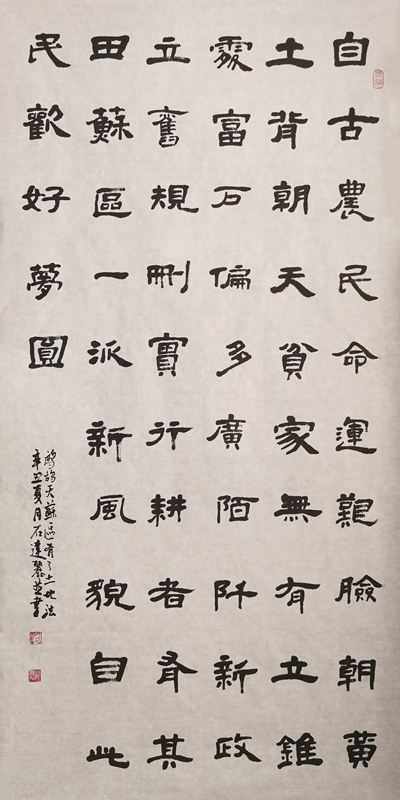 自古農民命運艱臉朝黃
土背朝天貧家無有立錐
處富戶偏多廣陌阡新政
立舊規刪實行耕者有其
田蘇區一派新風貌自此
民歡好夢圓
鷓鴣天蘇區有了土地法
辛丑夏月石達麗並書